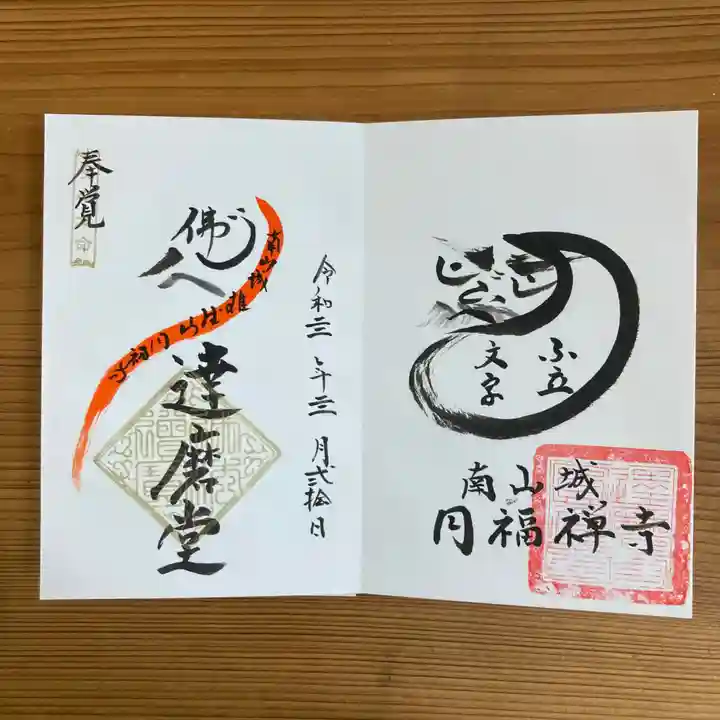 不立
文字
南山城
円福禅寺
令和三年三月弐拾日
南山城雄徳山円福寺
達磨堂
奉覚